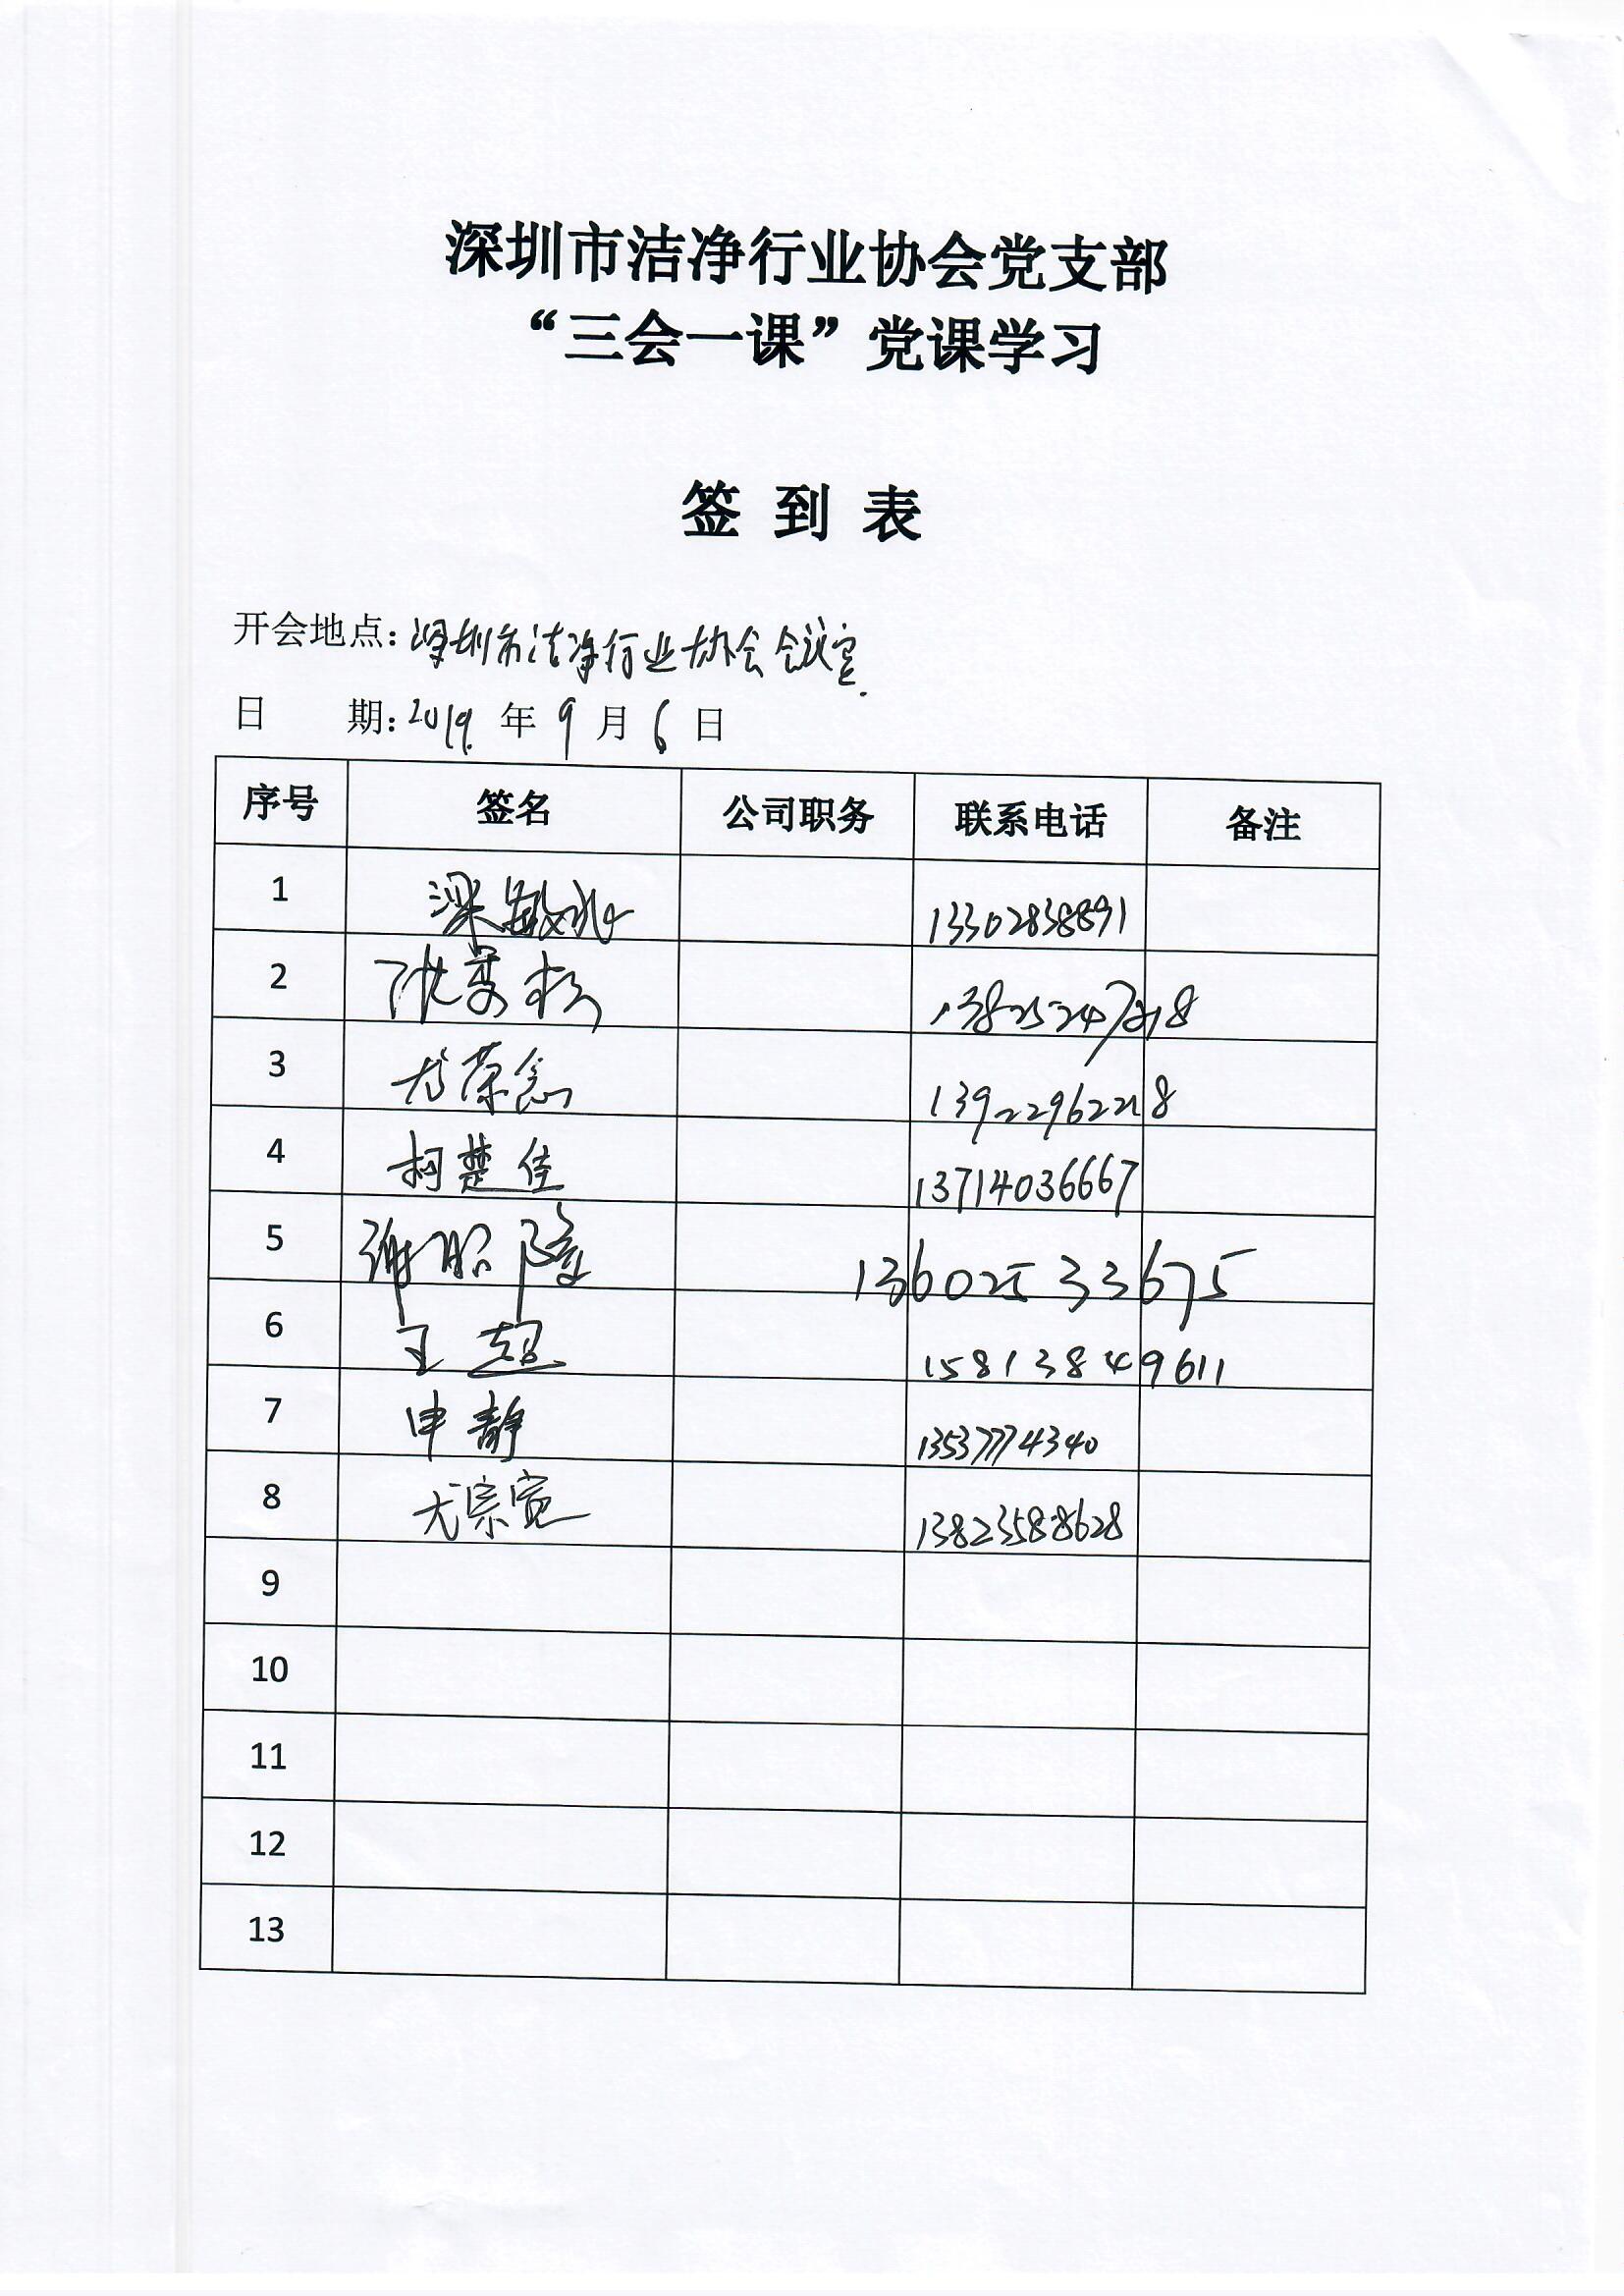 深圳市洁净行业协会党支部
“三会一课”党课学习
签到表
开会地点：深圳市洁净行业协会会议室.
日 期：2019. 年 9 月 6 日
序号 签名 公司职务 联系电话 备注
1 梁敏 13302838891
2 138252472
3 尤荣 13922962218
4 柯楚佳 13714036667
5 谢昭隆 13602533675
6 王超 15813849611
7 申静 13537774340
8 尤宗宽 13823588628
9
10
11
12
13